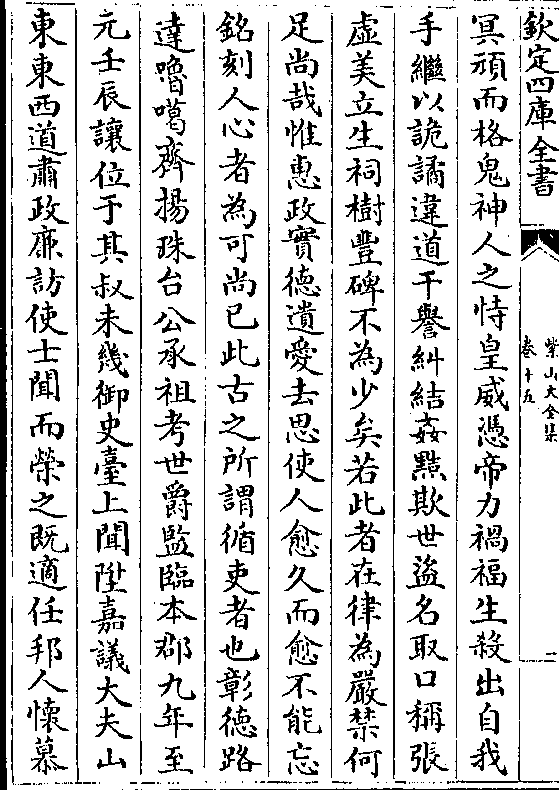 欽定四庫全書
紫山大全集
卷十五
一
冥頑而格鬼神人之恃皇威憑帝力禍福生殺出自我
手繼以詭譎違道干譽糾結姦黠欺世盜名取口稱張
虛美立生祠樹豐碑不為少矣若此者在律為嚴禁何
足尚哉惟惠政實德遺愛去思使人愈久而愈不能忘
銘刻人心者為可尚已此古之所謂循吏者也彰德路
達嚕噶齊揚珠台公承祖考世爵監臨本郡九年至
元壬辰讓位于其叔未幾御史臺上聞陞嘉議大夫山
東東西道肅政廉訪使士聞而榮之既適任邦人懷慕